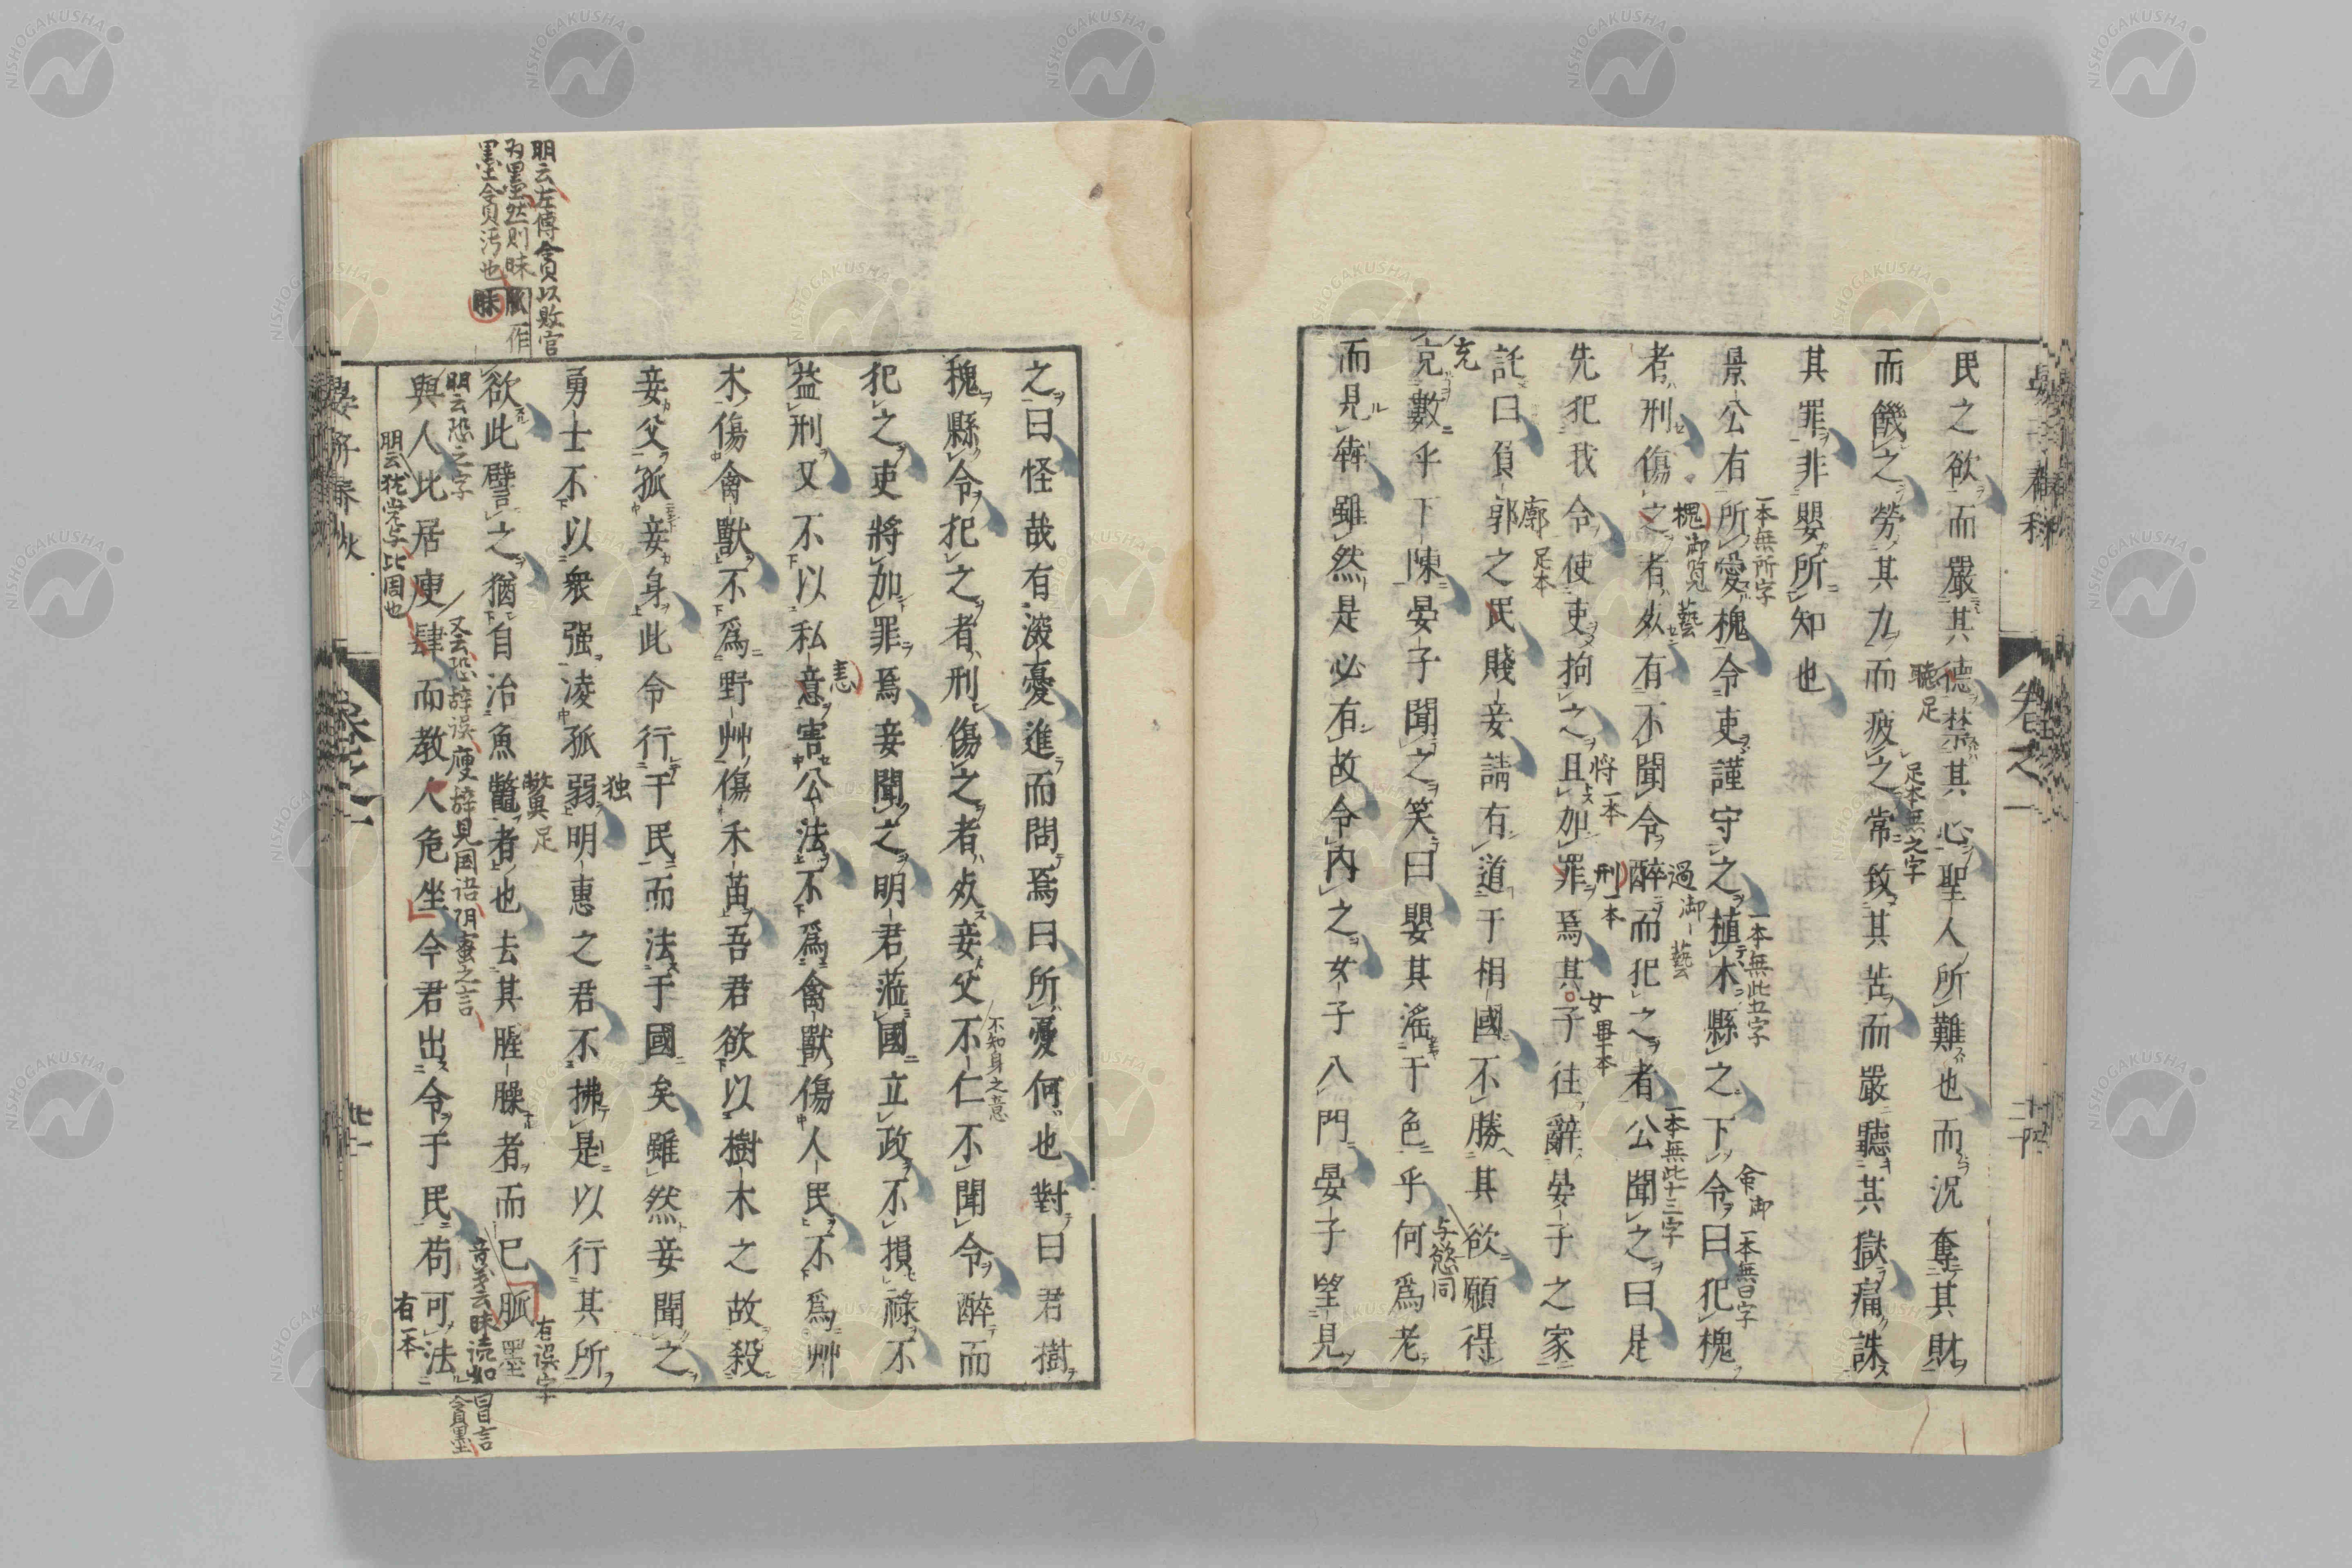 民之欲而嚴其德禁其心聖人所難也而況奪其財
而饑之勞其力而疲之常致其苦而嚴聽其獄痛誅
其罪非嬰所知也
景公有所愛槐令吏謹守之植木縣之下令曰犯槐
者刑傷之者死有不聞令醉而犯之者公聞之曰是
先犯我令使吏拘之且加罪焉其子往辭晏子之家
託曰負郭之民賤妾請有道于相國不勝其欲願得
充數乎下陳晏子聞之笑曰嬰其淫于色乎何爲老
而見犇雖然是必有故令內之女子入門晏子望見
之曰怪哉有深憂進而問焉曰所憂何也對曰君樹
槐縣令犯之者刑傷之者死妾父不仁不聞令醉而
犯之吏將加罪焉妾聞之明君蒞國立政不損祿不
益刑又不以私意害公法不爲禽獸傷人民不爲艸
木傷禽獸不爲野艸傷禾苗吾君欲以樹木之故殺
妾父孤妾身此令行于民而法于國矣雖然妾聞之
勇士不以衆强凌孤弱明惠之君不拂是以行其所
欲此譬之猶自治魚鼈者也去其腥臊者而已脈墨
與人比居庾肆而教人危坐今君出令于民苟可法
晏子春秋
卷之一
聽足
足本無之字
一本無所字
槐御覧
藝
一本無此五字
過御
藝
命御
一本無曰字
一本無此十三字
将一本
刑一本
女畢本
廓足本
充
与慾同
不知身之意
恚
独
鼈足
有誤字
音義云昧読如冒言
貪墨
明云左傳貪以敗官
为墨然則昧
墨貪汚也
脈一作
脒
明云恐之字
又云恐辞誤廋辞見国語阴蜜之言
明云犹党与比周也
有一本